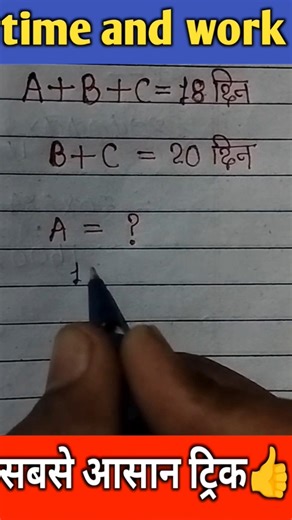 time and work
A+B+C=18 दिन
B+C = 20 दिन
A = ?
1
सबसे आसान ट्रिक👍